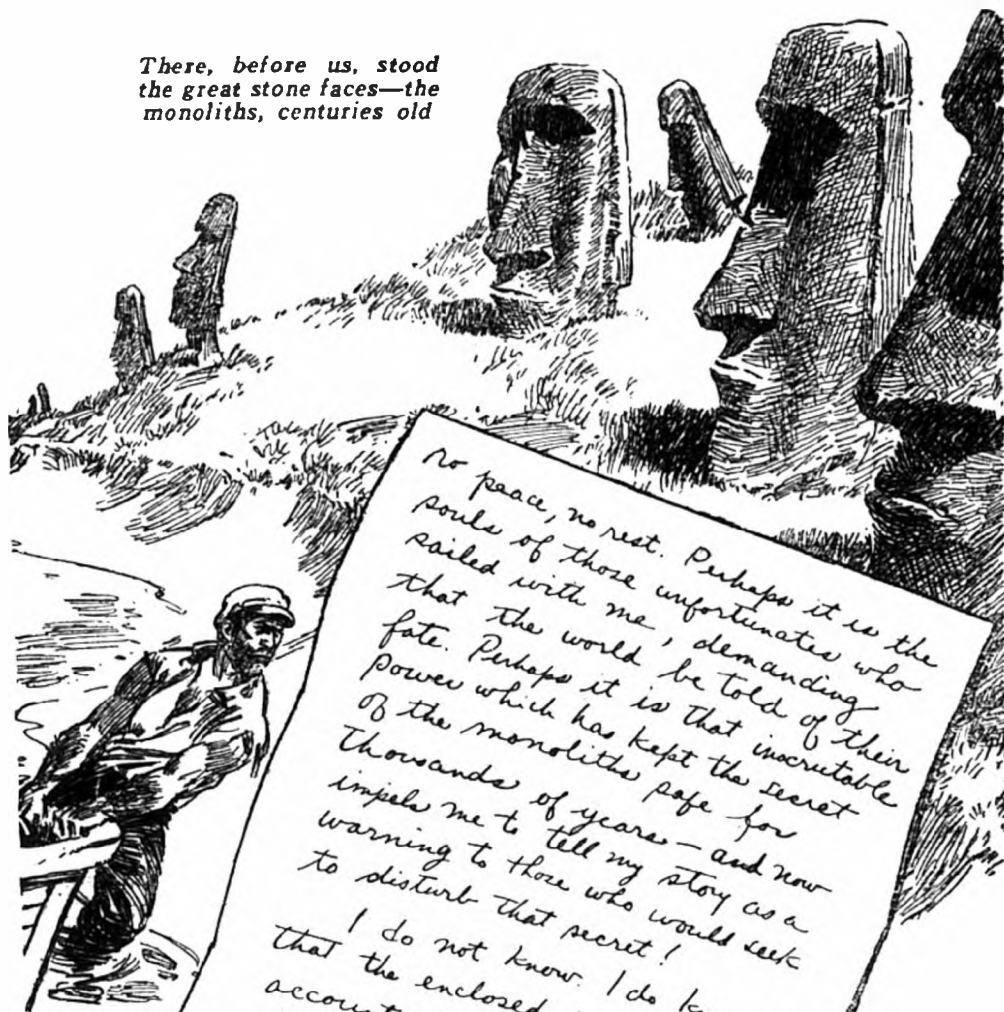 There, before us, stood
the great stone faces—the
monoliths, centuries old
no peace, no rest. Perhaps it is the
souls of those unfortunates who
sailed with me, demanding
that the world be told of their
fate. Perhaps it is that inscrutable
power which has kept the secret
of the monoliths safe for
thousands of years — and now
impels me to tell my story as a
warning to those who would seek
to disturb that secret!
I do not know. I do
that the enclosed